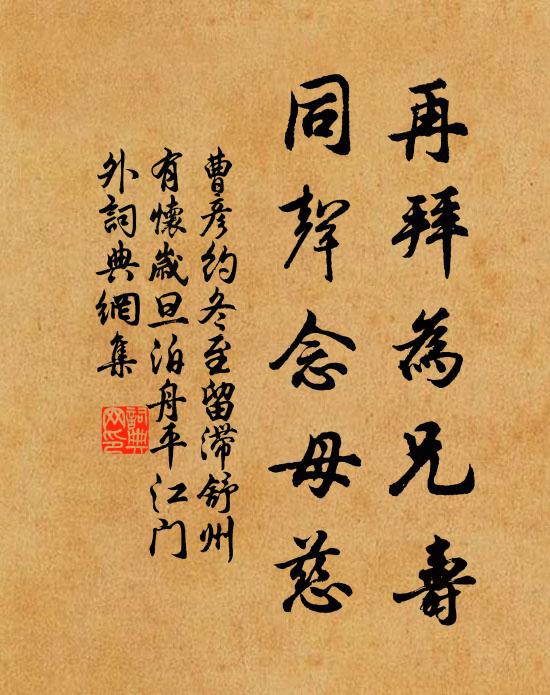 再拜為兄壽
同聲念母慈
曹彦約冬至留滯舒州
有懷歲旦泊舟平江门
外詞典網集
詞典网印